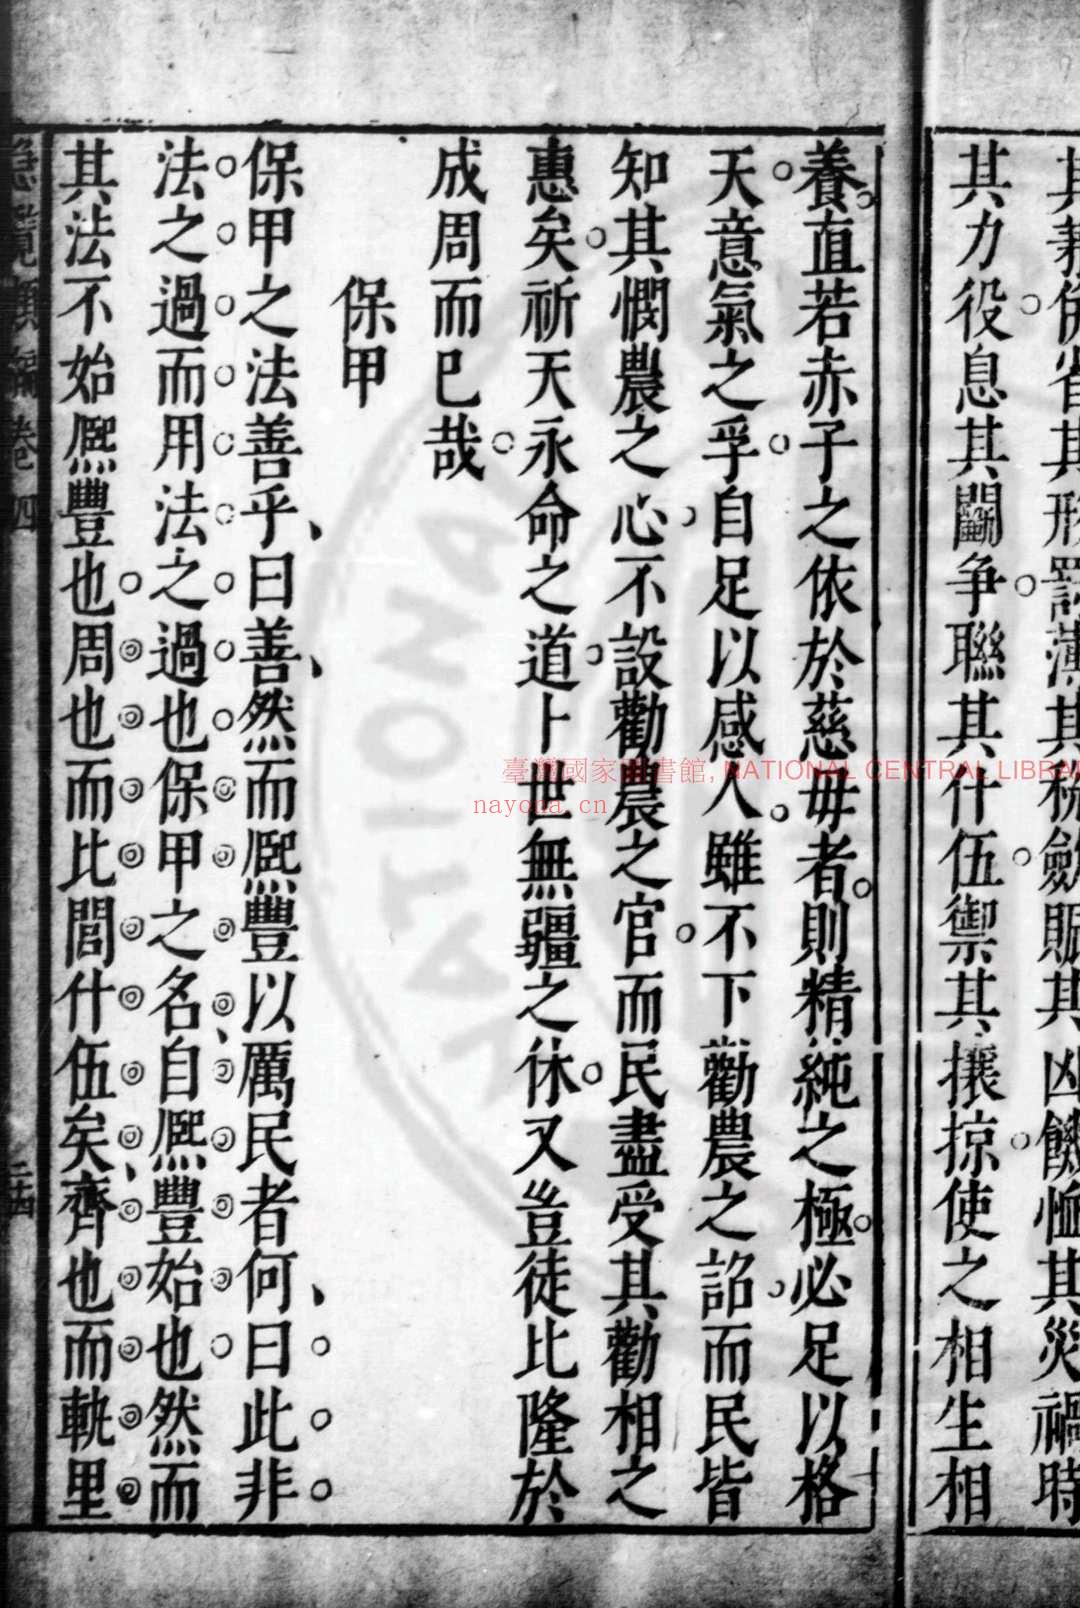 其義使省其形罰薄其稅斂賑其凶饑恤其災禍時
其力役息其鬭争聯其什伍禦其攘掠使之相生相
養直若赤子之依於慈毋者則精純之極必足以格
天意氣之孚自足以感人雖不下勸農之詔而民皆
知其憫農之心不設勸農之官而民盡受其勸相之
惠矣祈天永命之道卜世無疆之休又豈徒比隆於
成周而已哉
保甲
保甲之法善乎曰善然而熈豐以厲民者何曰此非
法之過而用法之過也保甲之名自熈豐始也然而
其法不始熈豐也周也而比閭什伍矣齊也而軌里
類編卷四
二十四
臺灣國家圖書館, NATIONAL CENTRAL LIBRA
nayona.cn